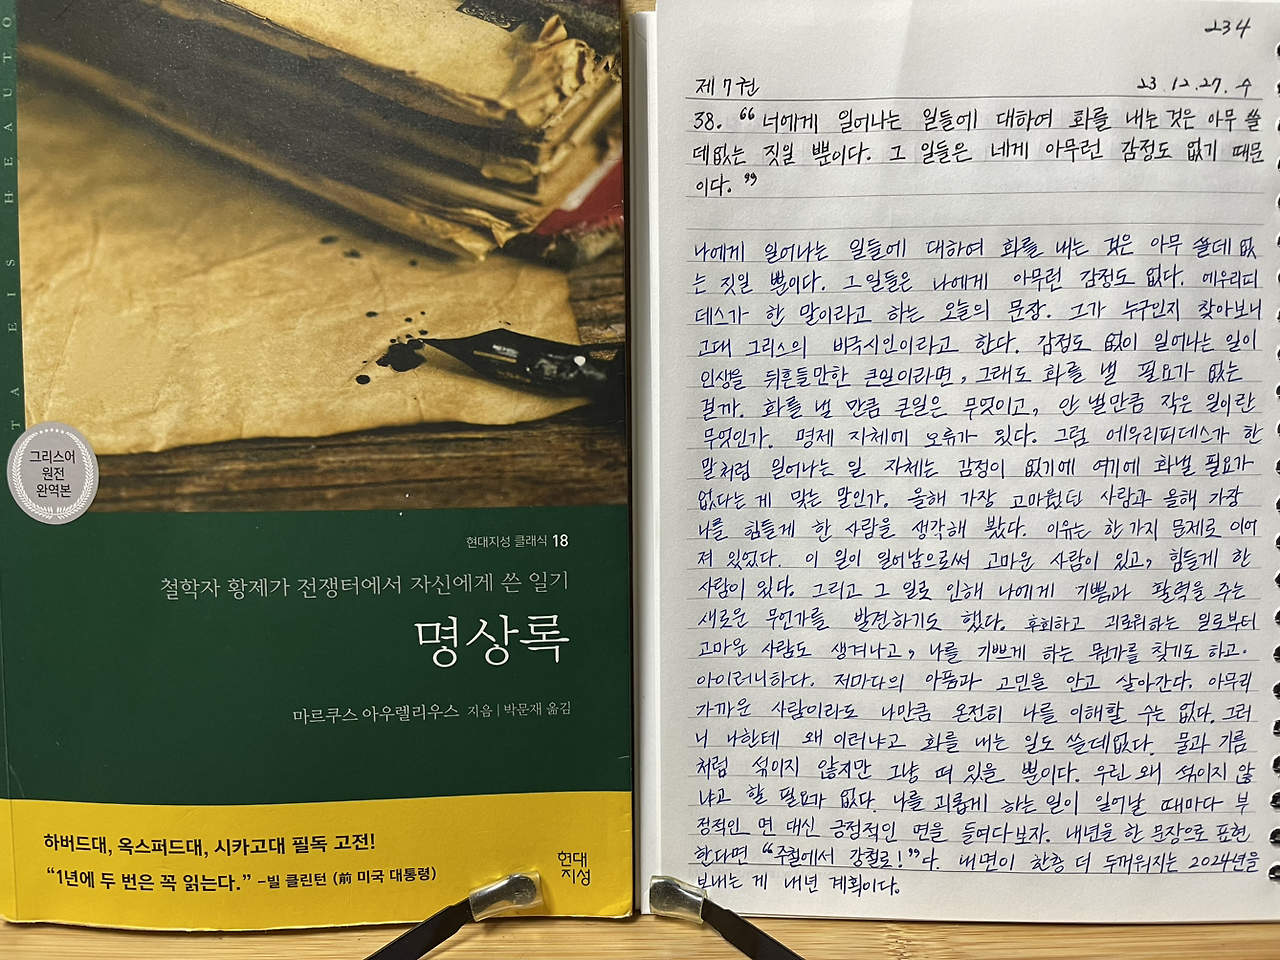 TAEISHEAUTO
그리스어
원전
완역본
현대지성 클래식 18
철학자 황제가 전쟁터에서 자신에게 쓴 일기
명상록
마르쿠스 아우렐리우스 지음 | 박문재 옮김
하버드대, 옥스퍼드대, 시카고대 필독 고전!
“1년에 두 번은 꼭 읽는다.” –빌 클린턴 (前 미국 대통령)
현대
지성
234
제 7권 23. 12. 27. 수
38. “너에게 일어나는 일들에 대하여 화를 내는 것은 아무 쓸
데없는 짓일 뿐이다. 그 일들은 네게 아무런 감정도 없기 때문
이다.”
나에게 일어나는 일들에 대하여 화를 내는 것은 아무 쓸데없
는 짓일 뿐이다. 그 일들은 나에게 아무런 감정도 없다. 에우리피
데스가 한 말이라고 하는 오늘의 문장. 그가 누구인지 찾아보니
고대 그리스의 비극시인이라고 한다. 감정도 없이 일어나는 일이
인생을 뒤흔들만한 큰일이라면, 그래도 화를 낼 필요가 없는
걸까. 화를 낼 만큼 큰일은 무엇이고, 안 낼만큼 작은 일이란
무엇인가. 명제 자체에 오류가 있다. 그럼 에우리피데스가 한
말처럼 일어나는 일 자체는 감정이 없기에 여기에 화낼 필요가
없다는 게 맞는 말인가. 올해 가장 고마웠던 사람과 올해 가장
나를 힘들게 한 사람을 생각해 봤다. 이유는 한 가지 문제로 이어
져 있었다. 이 일이 일어남으로써 고마운 사람이 있고, 힘들게 한
사람이 있다. 그리고 그 일로 인해 나에게 기쁨과 활력을 주는
새로운 무언가를 발견하기도 했다. 후회하고 괴로워하는 일로부터
고마운 사람도 생겨나고, 나를 기쁘게 하는 뭔가를 찾기도 하고.
아이러니하다. 저마다의 아픔과 고민을 안고 살아간다. 아무리
가까운 사람이라도 나만큼 온전히 나를 이해할 수는 없다. 그러
니 나한테 왜 이러냐고 화를 내는 일도 쓸데없다. 물과 기름
처럼 섞이지 않지만 그냥 떠 있을 뿐이다. 우린 왜 섞이지 않
냐고 할 필요가 없다. 나를 괴롭게 하는 일이 일어날 때마다 부
정적인 면 대신 긍정적인 면을 들여다보자. 내년을 한 문장으로 표현
한다면 “주철에서 강철로!”다. 내면이 한층 더 두꺼워지는 2024년을
보내는 게 내년 계획이다.